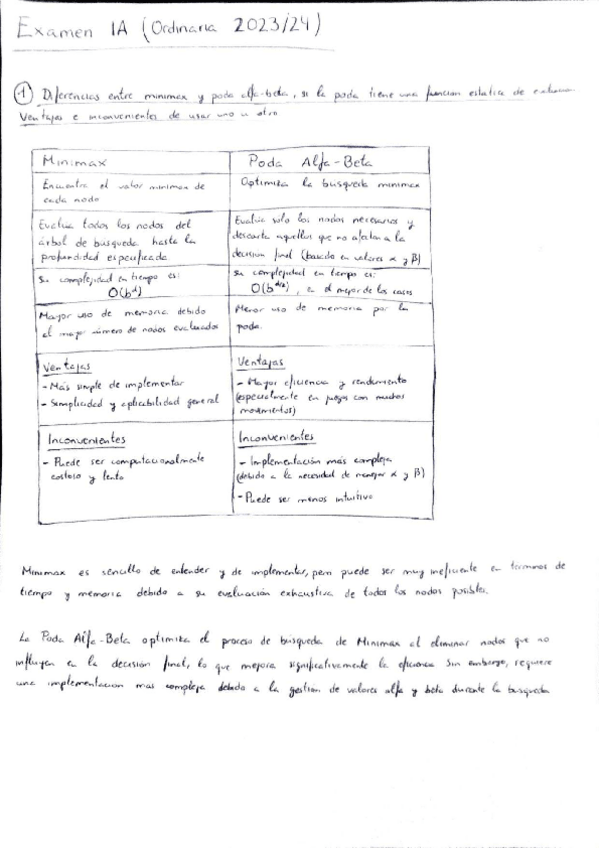 Examen IA (Ordinaria 2023/24)
① Diferencias entre minimax y poda alfa-beta, si la poda tiene una función estática de
Ventajas e inconvenientes de usar uno u otro
Minimax
Poda Alfa-Beta
Encuentra el valor minimax de
cada nodo
Optimiza la busqueda minimax
Evalúa todos los nodos del
árbol de búsqueda hasta la
profundidad especificada
Evalúa solo los nodos necesarios y
descarta aquellos que no afectan a la
decisión final (basado en valores α y β)
Su complejidad en tiempo es:
O(b^d)
Su complejidad en tiempo es:
O(b^d/2), en el mejor de los casos
Mayor uso de memoria debido
al mayor número de nodos evaluados
Menor uso de memoria por la
poda.
Ventajas
- Más simple de implementar
- Simplicidad y aplicabilidad general
Ventajas
- Mayor eficiencia y rendimiento
(especialmente en juegos con muchos
movimientos)
Inconvenientes
- Puede ser computacionalmente
costoso y lento
Inconvenientes
- Implementación más compleja
(debido a la necesidad de manejar α y β)
- Puede ser menos intuitivo
Minimax es sencillo de entender y de implementar, pero puede ser muy ineficiente en terminos de
tiempo y memoria debido a su evaluación exhaustiva de todos los nodos posibles.
La Poda Alfa-Beta optimiza el proceso de busqueda de Minimax al eliminar nodos que no
influyen en la decisión final, lo que mejora significativamente la eficiencia. Sin embargo, requiere
una implementacion mas compleja debido a la gestión de valores alfa y beta durante la busqueda